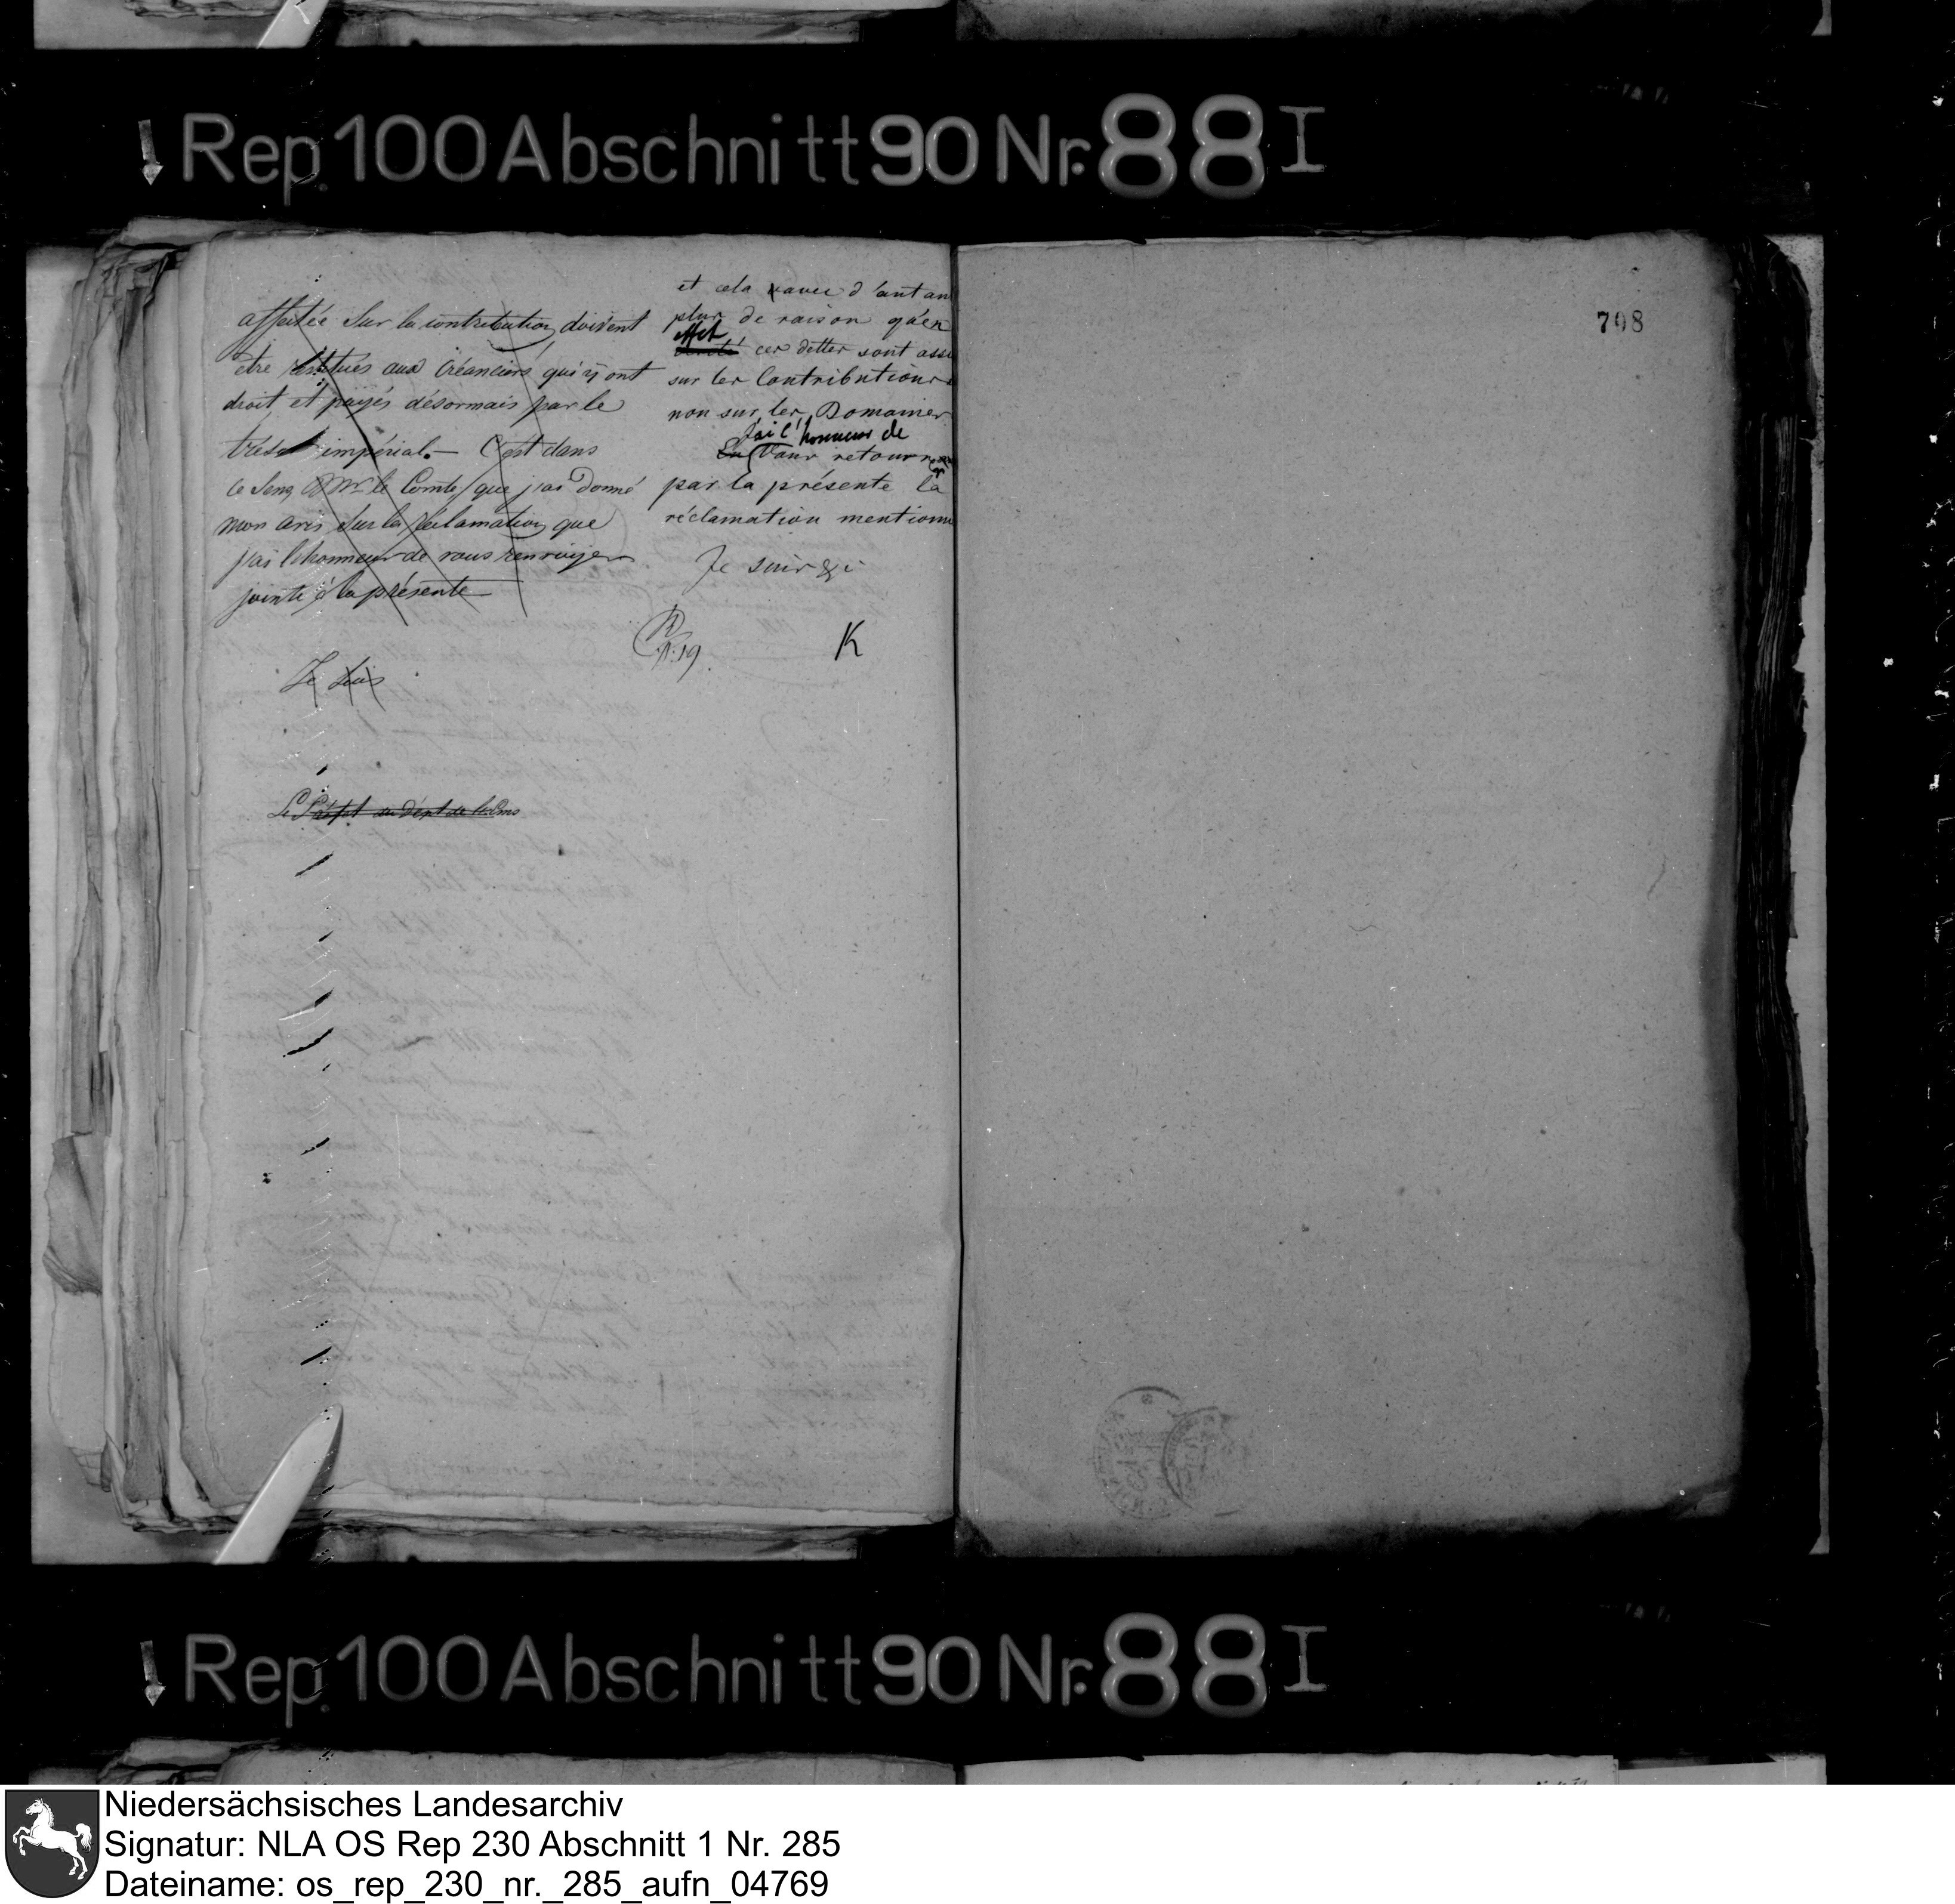 Rep. 100 Abschnitt 90 Nr. 88 I
affectée sur la contribution, doivent
être restitués aux Créanciers qui y ont
droit, et payés désormais par le
trésor impérial. — C'est dans
ce sens Mr. le Comte, que j'ai donné
mon avis sur la réclamation, que
j'ai l'honneur de vous renvoyer
jointe à la présente
Je suis
Le Préfet du Dépt de l'Ems
et cela avec d'autan
plus de raison qu'en
effet
ces dettes sont assi
sur les Contributions
non sur les Domaines
J'ai l'honneur de
En Vous retourner
par la présente la
réclamation mentionn
Je suis &c
19.
K
708
Rep. 100 Abschnitt 90 Nr. 88 I
Niedersächsisches Landesarchiv
Signatur: NLA OS Rep 230 Abschnitt 1 Nr. 285
Dateiname: os_rep_230_nr._285_aufn_04769